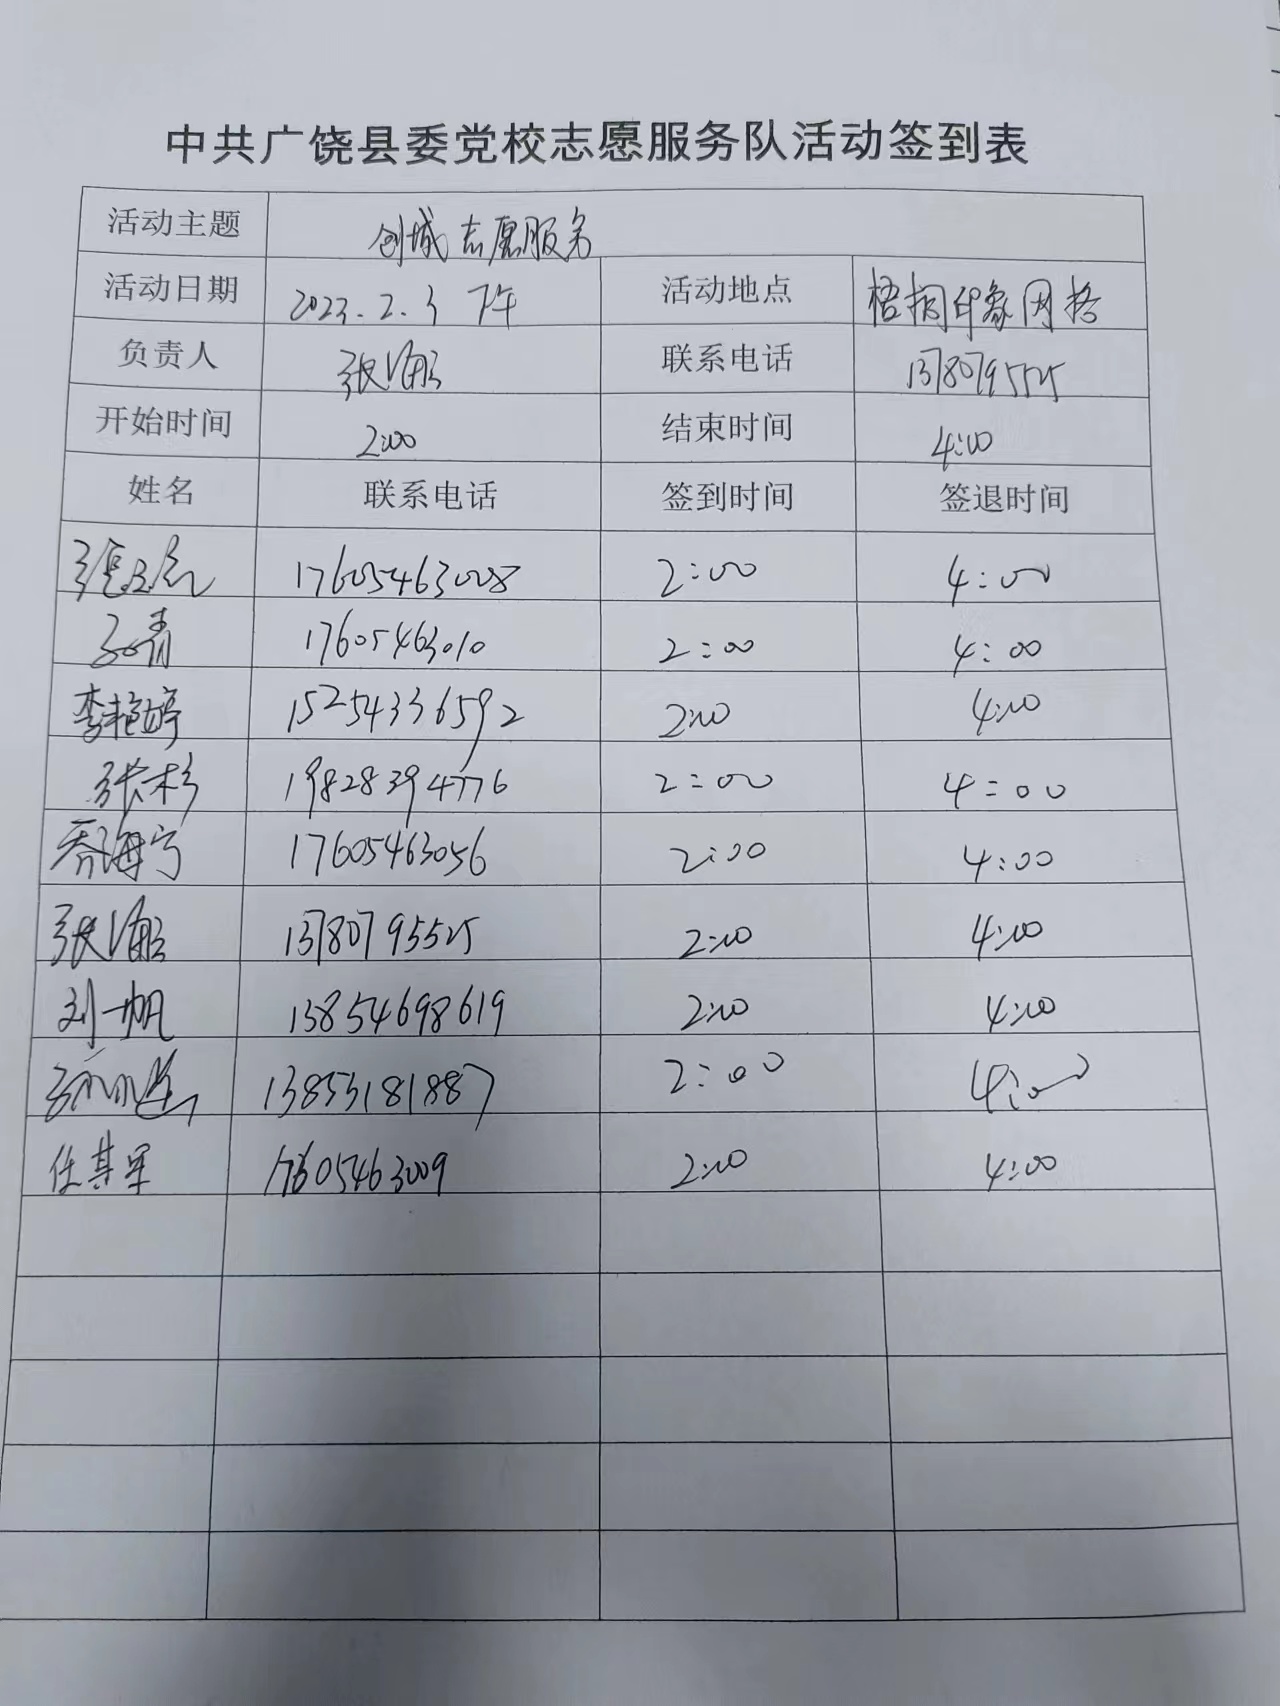 中共广饶县委党校志愿服务队活动签到表
活动主题 创城志愿服务
活动日期 2023.2.3 下午 活动地点 梧桐印象网格
负责人 张 联系电话 13780795525
开始时间 2:00 结束时间 4:00
姓名 联系电话 签到时间 签退时间
张 17605463008 2:00 4:00
青 17605463010 2:00 4:00
李艳婷 15254336592 2:00 4:00
张杉 19828394776 2:00 4:00
乔海宁 17605463056 2:00 4:00
张 13780795525 2:00 4:00
刘一帆 13854698619 2:00 4:00
13853181887 2:00 4:00
任其军 17605463009 2:00 4:00